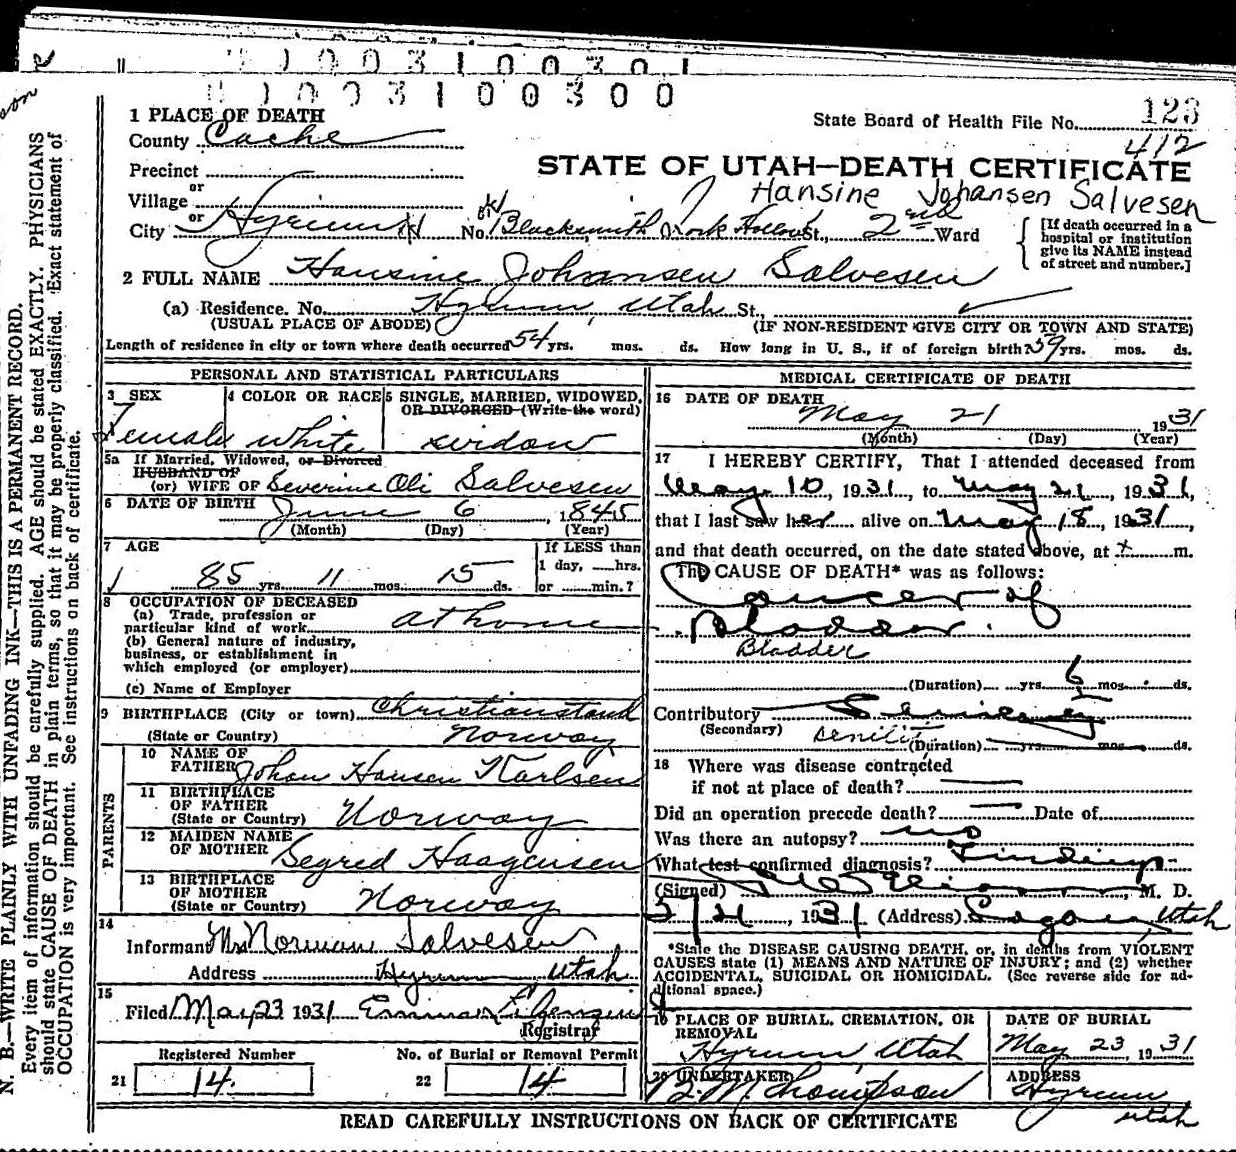 1 0 0 3 1 0 0 3 0 1
1 0 0 3 1 0 0 3 0 0
1 PLACE OF DEATH
State Board of Health File No. 123
412
County Cache
STATE OF UTAH—DEATH CERTIFICATE
Precinct
or
Village
Hansine Johansen Salvesen
or
City Hyrum No. Blacksmith Fork Hollow St., 2nd Ward
[If death occurred in a hospital or institution give its NAME instead of street and number.]
2 FULL NAME Hansine Johansen Salvesen
(a) Residence. No. Hyrum, Utah St.,
(USUAL PLACE OF ABODE) (IF NON-RESIDENT GIVE CITY OR TOWN AND STATE)
Length of residence in city or town where death occurred 54 yrs. mos. ds. How long in U. S., if of foreign birth? 59 yrs. mos. ds.
PERSONAL AND STATISTICAL PARTICULARS
3 SEX 4 COLOR OR RACE 5 SINGLE, MARRIED, WIDOWED,
OR DIVORCED (Write the word)
Female white widow
5a If Married, Widowed, or Divorced
HUSBAND OF
(or) WIFE OF Severine Oli Salvesen
6 DATE OF BIRTH June 6, 1845
(Month) (Day) (Year)
7 AGE If LESS than
1 day, hrs.
85 yrs. 11 mos. 15 ds. or min.?
8 OCCUPATION OF DECEASED
(a) Trade, profession or
particular kind of work at home
(b) General nature of industry,
business, or establishment in
which employed (or employer)
(c) Name of Employer
9 BIRTHPLACE (City or town) Christianstand
(State or Country) Norway
PARENTS
10 NAME OF
FATHER Johan Hansen Karlsen
11 BIRTHPLACE
OF FATHER
(State or Country) Norway
12 MAIDEN NAME
OF MOTHER Segred Haagensen
13 BIRTHPLACE
OF MOTHER
(State or Country) Norway
14
Informant Mrs Norman Salvesen
Address Hyrum Utah
15
Filed May 23 1931
Registrar
Registered Number No. of Burial or Removal Permit
21 14. 22 14
MEDICAL CERTIFICATE OF DEATH
16 DATE OF DEATH
May 21 1931
(Month) (Day) (Year)
17 I HEREBY CERTIFY, That I attended deceased from
May 10, 1931, to May 21, 1931,
that I last saw her alive on May 18, 1931,
and that death occurred, on the date stated above, at m.
The CAUSE OF DEATH* was as follows:
Cancer of
Bladder.
Bladder
(Duration) yrs. 6 mos. ds.
Contributory Senility
(Secondary) senility (Duration) yrs. mos. ds.
18 Where was disease contracted
if not at place of death?
Did an operation precede death? Date of
Was there an autopsy? no
What test confirmed diagnosis? Findings
(Signed) M. D.
5/21, 1931 (Address) Logan, Utah
*State the DISEASE CAUSING DEATH, or, in deaths from VIOLENT
CAUSES state (1) MEANS AND NATURE OF INJURY; and (2) whether
ACCIDENTAL, SUICIDAL OR HOMICIDAL. (See reverse side for ad-
ditional space.)
19 PLACE OF BURIAL, CREMATION, OR
REMOVAL
Hyrum, Utah
DATE OF BURIAL
May 23, 1931
20 UNDERTAKER
Thompson
ADDRESS
Hyrum
Utah
READ CAREFULLY INSTRUCTIONS ON BACK OF CERTIFICATE
N. B.—WRITE PLAINLY WITH UNFADING INK—THIS IS A PERMANENT RECORD.
Every item of information should be carefully supplied. AGE should be stated EXACTLY. PHYSICIANS
should state CAUSE OF DEATH in plain terms, so that it may be properly classified. Exact statement of
OCCUPATION is very important. See instructions on back of certificate.